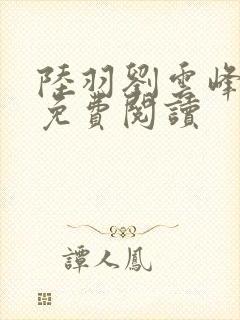 陸羽劉雲峰
免費閱讀
譚人鳳